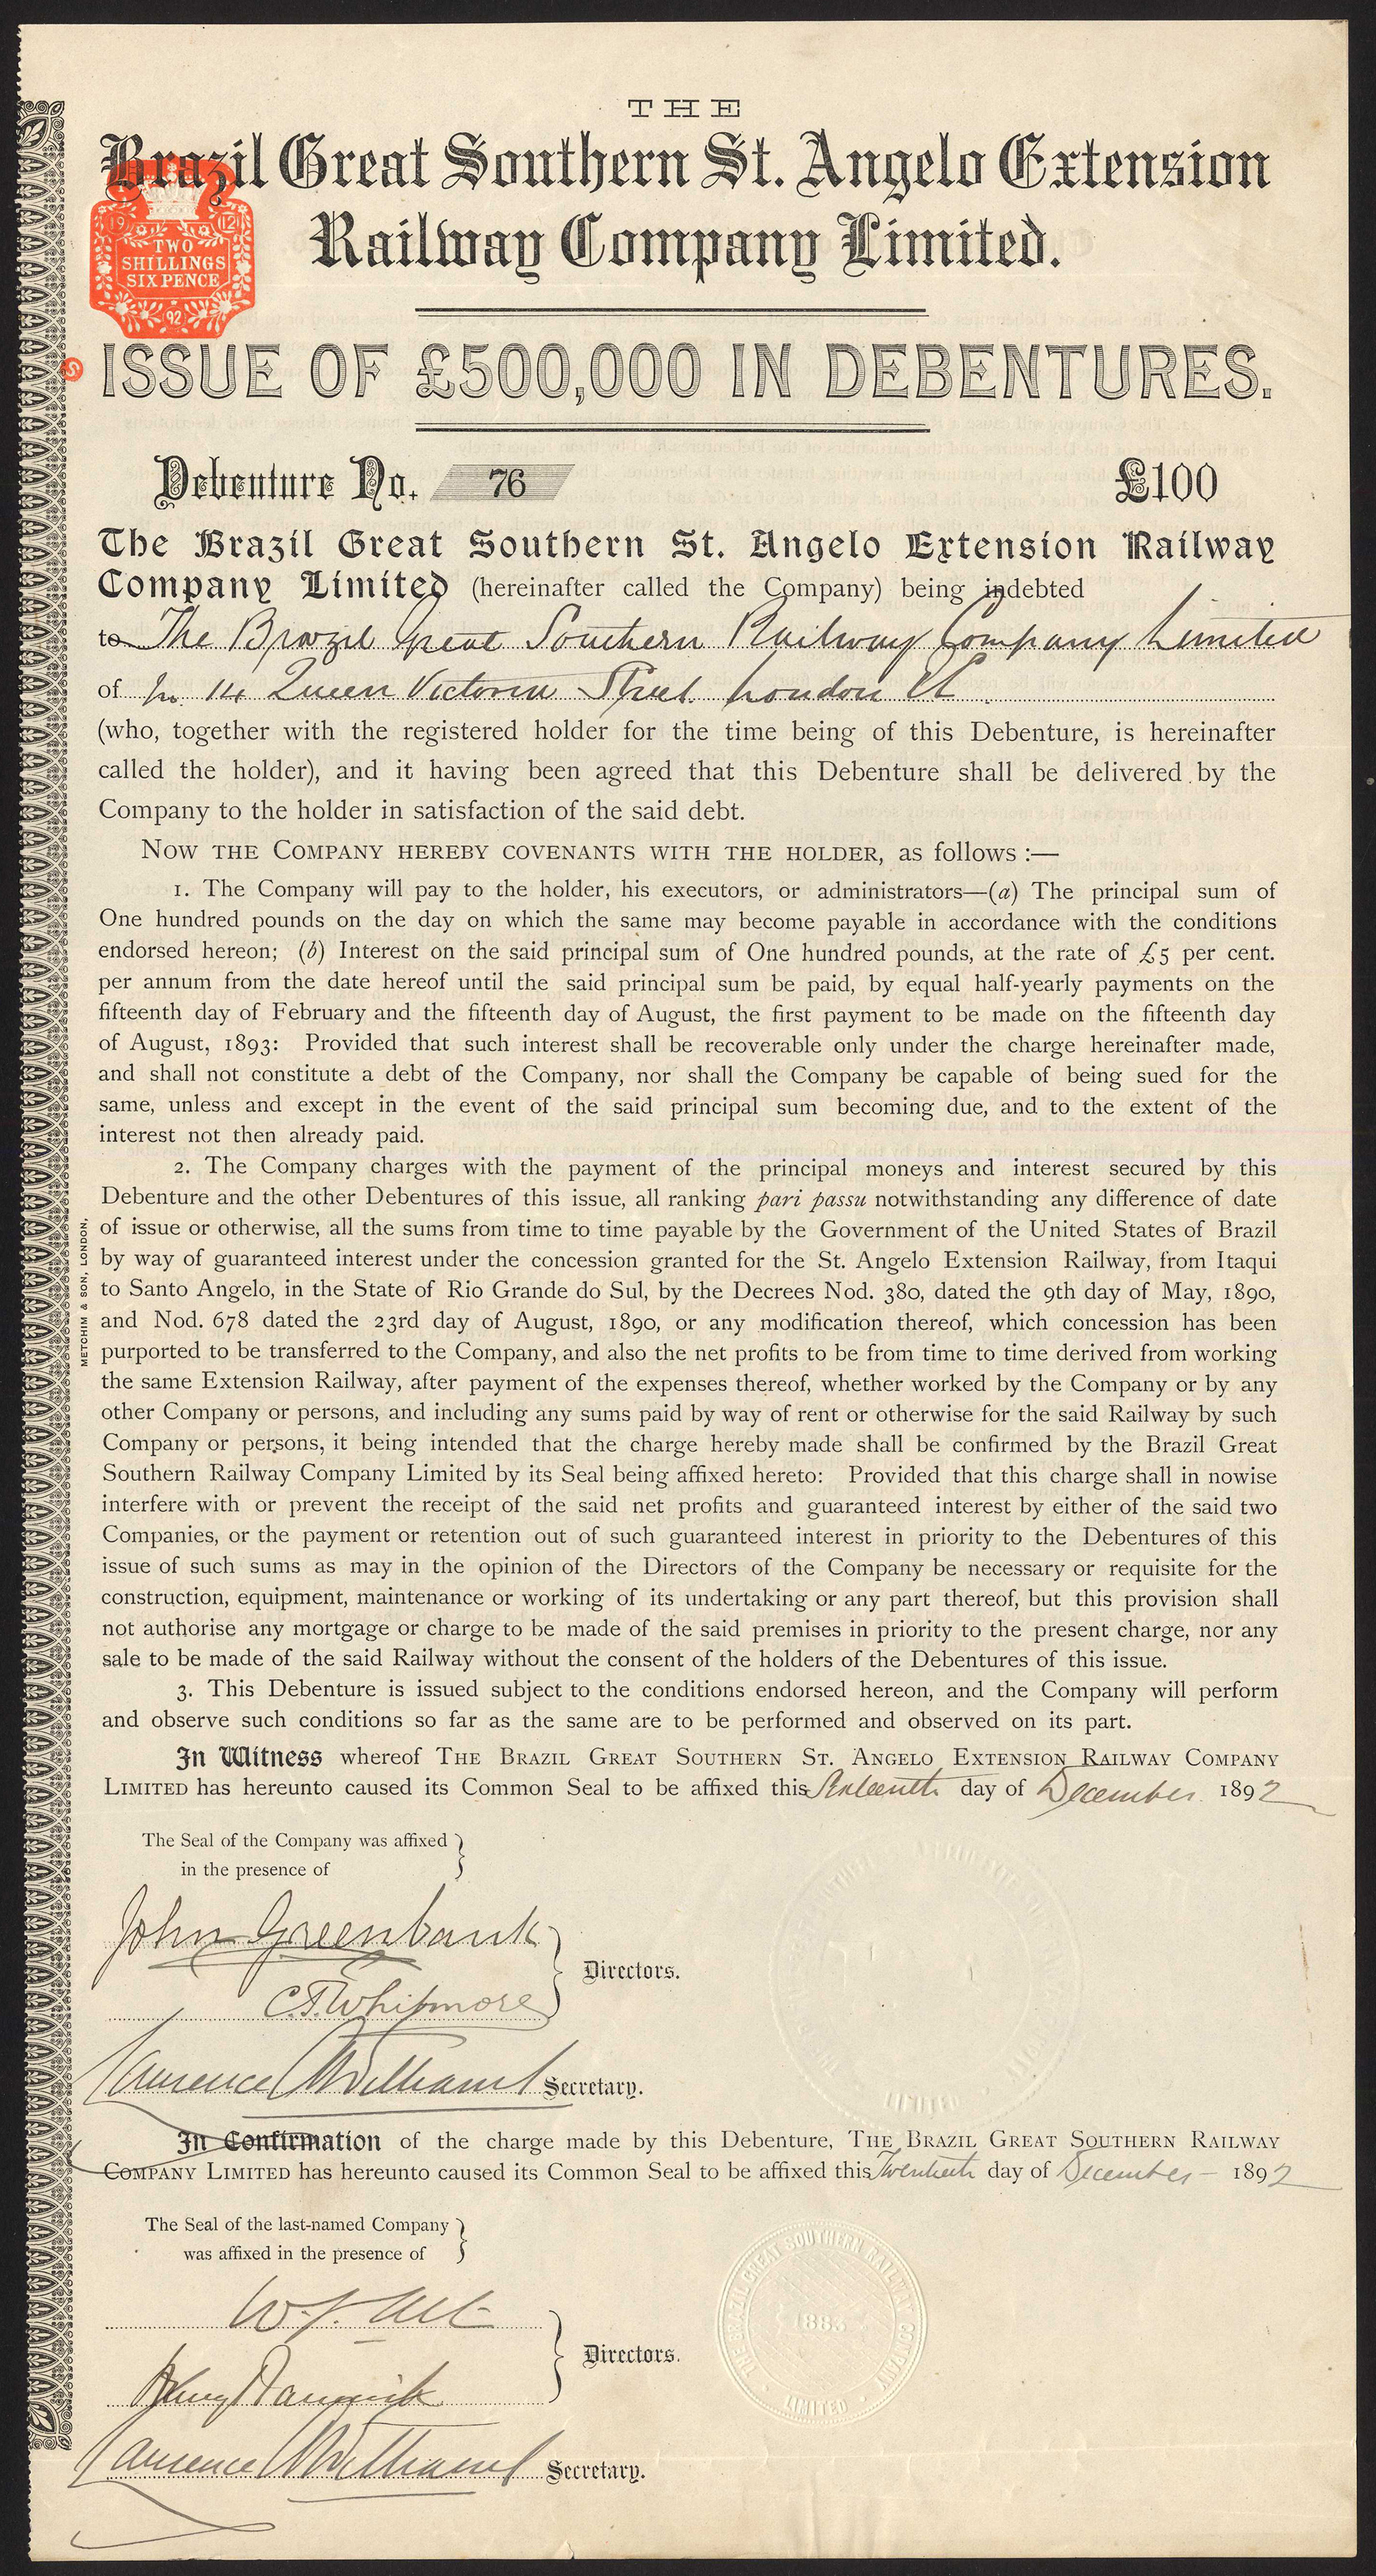 THE
Brazil Great Southern St. Angelo Extension
Railway Company Limited.
19 12
TWO
SHILLINGS
SIXPENCE
92
S
ISSUE OF £500,000 IN DEBENTURES.
Debenture No. 76 £100
The Brazil Great Southern St. Angelo Extension Railway
Company Limited (hereinafter called the Company) being indebted
to The Brazil Great Southern Railway Company Limited
of 14 Queen Victoria Street London
(who, together with the registered holder for the time being of this Debenture, is hereinafter
called the holder), and it having been agreed that this Debenture shall be delivered by the
Company to the holder in satisfaction of the said debt.
NOW THE COMPANY HEREBY COVENANTS WITH THE HOLDER, as follows :—
1. The Company will pay to the holder, his executors, or administrators—(a) The principal sum of
One hundred pounds on the day on which the same may become payable in accordance with the conditions
endorsed hereon; (b) Interest on the said principal sum of One hundred pounds, at the rate of £5 per cent.
per annum from the date hereof until the said principal sum be paid, by equal half-yearly payments on the
fifteenth day of February and the fifteenth day of August, the first payment to be made on the fifteenth day
of August, 1893: Provided that such interest shall be recoverable only under the charge hereinafter made,
and shall not constitute a debt of the Company, nor shall the Company be capable of being sued for the
same, unless and except in the event of the said principal sum becoming due, and to the extent of the
interest not then already paid.
2. The Company charges with the payment of the principal moneys and interest secured by this
Debenture and the other Debentures of this issue, all ranking pari passu notwithstanding any difference of date
of issue or otherwise, all the sums from time to time payable by the Government of the United States of Brazil
by way of guaranteed interest under the concession granted for the St. Angelo Extension Railway, from Itaqui
to Santo Angelo, in the State of Rio Grande do Sul, by the Decrees Nod. 380, dated the 9th day of May, 1890,
and Nod. 678 dated the 23rd day of August, 1890, or any modification thereof, which concession has been
purported to be transferred to the Company, and also the net profits to be from time to time derived from working
the same Extension Railway, after payment of the expenses thereof, whether worked by the Company or by any
other Company or persons, and including any sums paid by way of rent or otherwise for the said Railway by such
Company or persons, it being intended that the charge hereby made shall be confirmed by the Brazil Great
Southern Railway Company Limited by its Seal being affixed hereto: Provided that this charge shall in nowise
interfere with or prevent the receipt of the said net profits and guaranteed interest by either of the said two
Companies, or the payment or retention out of such guaranteed interest in priority to the Debentures of this
issue of such sums as may in the opinion of the Directors of the Company be necessary or requisite for the
construction, equipment, maintenance or working of its undertaking or any part thereof, but this provision shall
not authorise any mortgage or charge to be made of the said premises in priority to the present charge, nor any
sale to be made of the said Railway without the consent of the holders of the Debentures of this issue.
3. This Debenture is issued subject to the conditions endorsed hereon, and the Company will perform
and observe such conditions so far as the same are to be performed and observed on its part.
In Witness whereof THE BRAZIL GREAT SOUTHERN ST. ANGELO EXTENSION RAILWAY COMPANY
LIMITED has hereunto caused its Common Seal to be affixed this Sixteenth day of December 1892
METCHIM & SON, LONDON.
The Seal of the Company was affixed
in the presence of
John Greenbank
C.T. Whitmore
Directors.
Laurence Williams Secretary.
LIMITED
In Confirmation of the charge made by this Debenture, THE BRAZIL GREAT SOUTHERN RAILWAY
COMPANY LIMITED has hereunto caused its Common Seal to be affixed this Twentieth day of December 1892
The Seal of the last-named Company
was affixed in the presence of
Directors.
Laurence Williams Secretary.
THE BRAZIL GREAT SOUTHERN RAILWAY COMPANY
1883
LIMITED